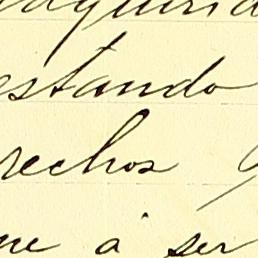 estando
rechos
ue á ser